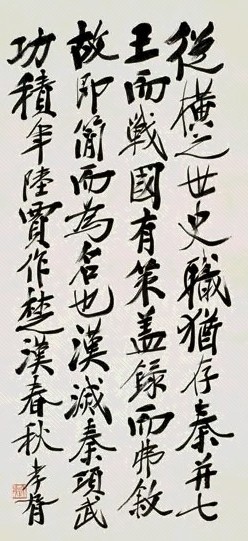 從橫之世史職猶存秦并七
王而戰國有策盖錄而弗敘
故即簡而為名也漢滅秦項武
功積年陸賈作楚漢春秋 孝胥